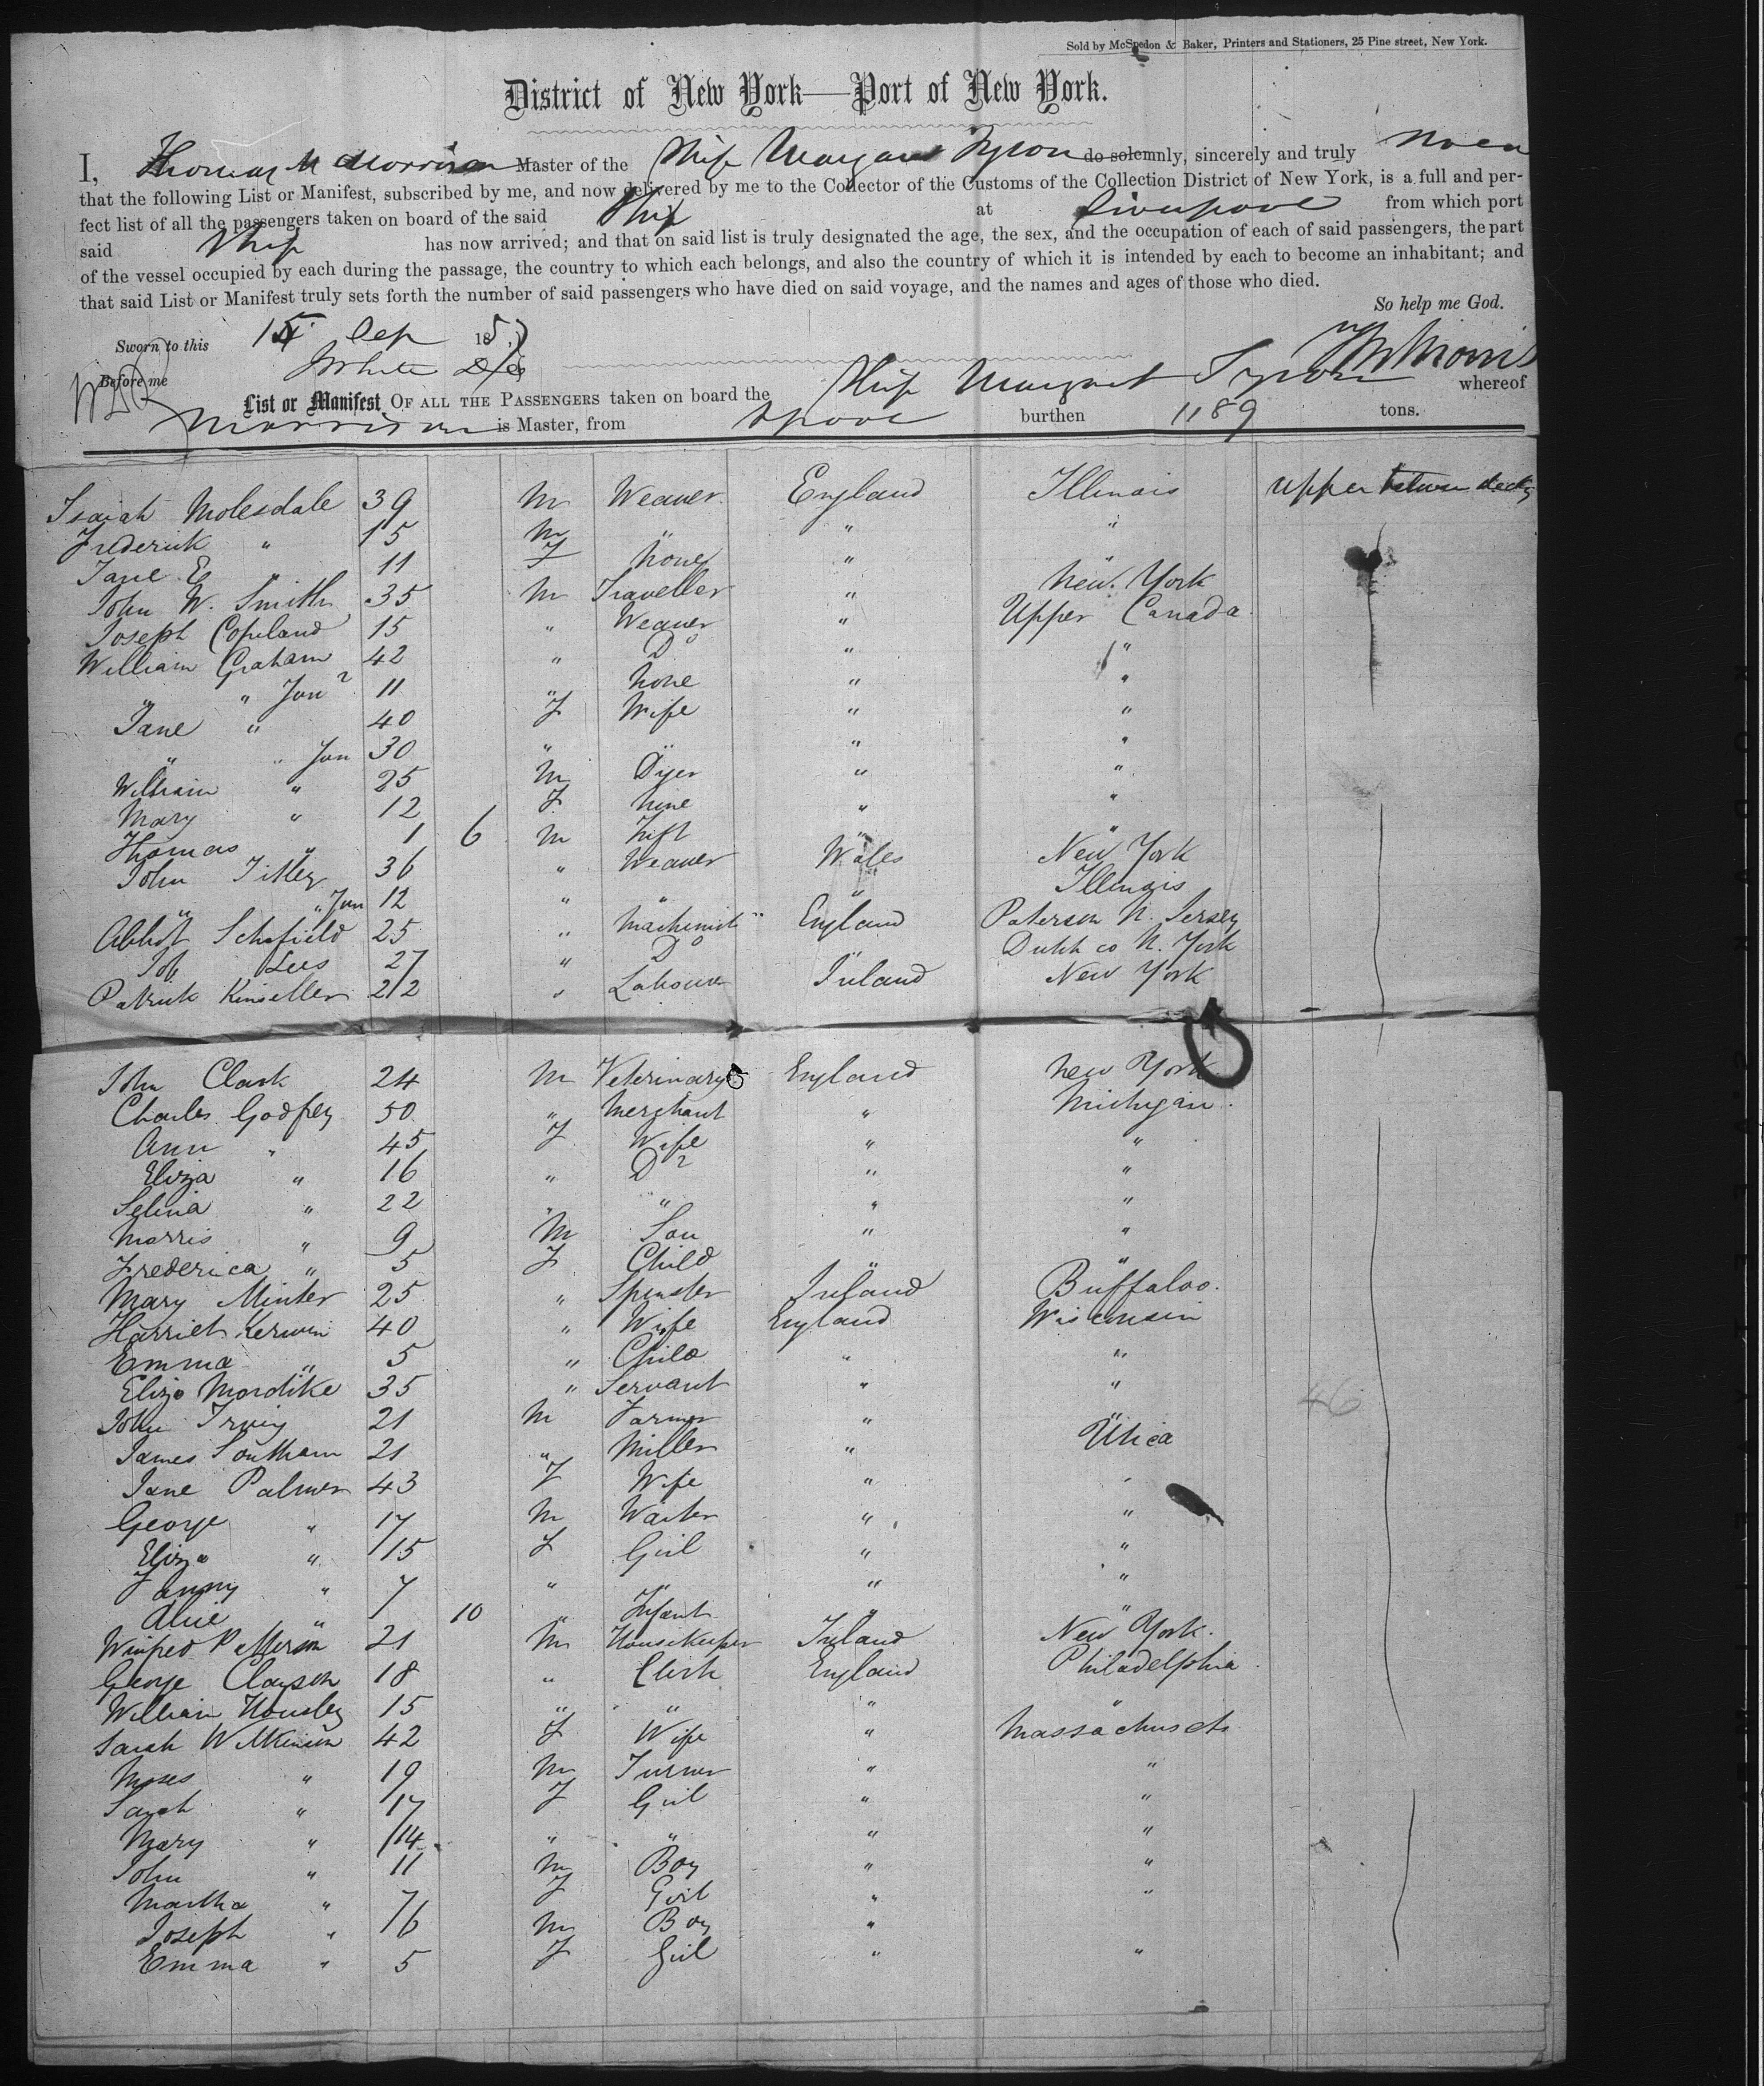 Sold by McSpedon & Baker, Printers and Stationers, 25 Pine street, New York.
District of New York—Port of New York.
I, Thomas M Morrison Master of the Ship Margaret Tyson do solemnly, sincerely and truly
that the following List or Manifest, subscribed by me, and now delivered by me to the Collector of the Customs of the Collection District of New York, is a full and per-
fect list of all the passengers taken on board of the said Ship at Liverpool from which port
said Ship has now arrived; and that on said list is truly designated the age, the sex, and the occupation of each of said passengers, the part
of the vessel occupied by each during the passage, the country to which each belongs, and also the country of which it is intended by each to become an inhabitant; and
that said List or Manifest truly sets forth the number of said passengers who have died on said voyage, and the names and ages of those who died.
So help me God.
Sworn to this 15 Sep 1857
Before me
List or Manifest OF ALL THE PASSENGERS taken on board the Ship Margaret Tyson whereof
Morrison is Master, from Lpool burthen 1189 tons.
Isaiah Molesdale 39 M Weaver England Illinois upper between decks
Frederick " 15 M " " "
Jane E " 11 F None " "
John W. Smith 35 M Traveller " New York
Joseph Copeland 15 " Weaver " Upper Canada
William Graham 42 " Do " "
" " Junr 11 " None " "
Jane " 40 F Wife " "
" " Jun 30 " " " "
William " 25 M Dyer " "
Mary " 12 F None " "
Thomas " 1 6 M Inft " "
John Titley 36 " Weaver Wales New York
" " Jun 12 " " " Illinois
Abbot Schofield 25 " Machinist England Paterson N. Jersey
Job Lees 27 " Do " Dutch co N. York
Patrick Kinseller 22 " Labourer Ireland New York
John Clark 24 M Veterinary England New York
Charles Godfrey 50 " Merchant " Michigan
Ann " 45 F Wife " "
Eliza " 16 " Do " "
Selina " 22 " " " "
Morris " 9 M Son " "
Frederica " 5 F Child " "
Mary Minter 25 " Spinster Ireland Buffaloo.
Harriet Kerwin 40 " Wife England Wisconsin
Emma " 5 " Child " "
Eliza Mordike 35 " Servant " "
John Irving 21 M Farmer " "
James Southam 21 " Miller " Utica
Jane Palmer 43 F Wife " "
George " 17 M Waiter " "
Eliza " 15 F Girl " "
Fanny " 7 " " " "
Alice " 10 " Infant " "
Winifred Patterson 21 M Housekeeper Ireland New York.
George Clayson 18 " Clerk England Philadelphia
William Housley 15 " " " "
Sarah Wilkinson 42 F Wife " Massachusets
Moses " 19 M Turner " "
Sarah " 17 F Girl " "
Mary " 14 " " " "
John " 11 M Boy " "
Martha " 7 F Girl " "
Joseph " 6 M Boy "
Emma " 5 F Girl " "
46